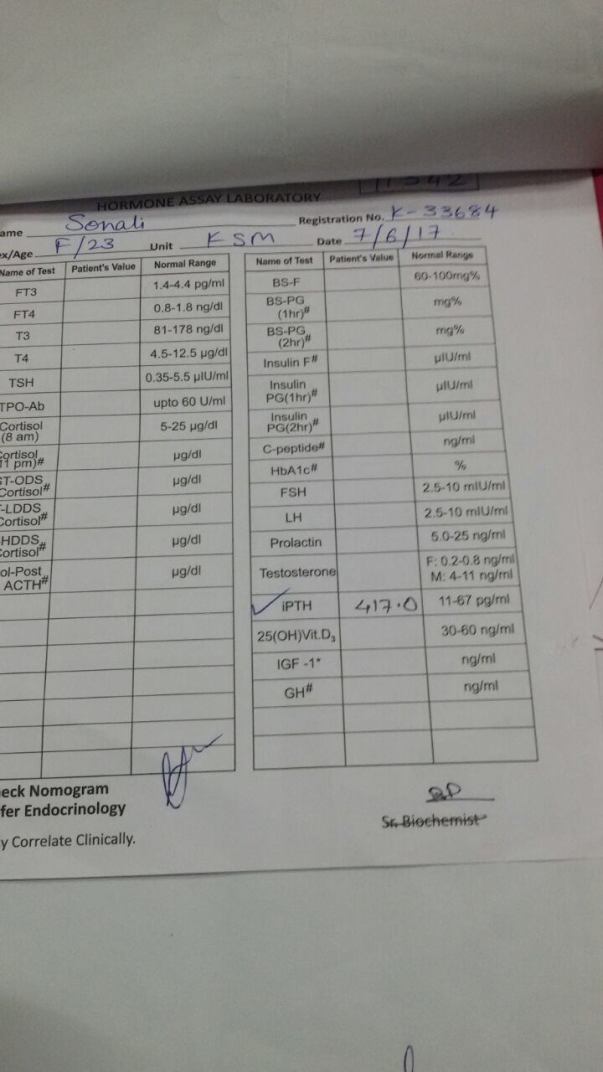 11342
HORMONE ASSAY LABORATORY
ame Sonali Registration No. K-33684
ex/Age F/23 Unit KSM Date 7/6/17
Name of Test Patient's Value Normal Range
FT3 1.4-4.4 pg/ml
FT4 0.8-1.8 ng/dl
T3 81-178 ng/dl
T4 4.5-12.5 µg/dl
TSH 0.35-5.5 µIU/ml
TPO-Ab upto 60 U/ml
Cortisol (8 am) 5-25 µg/dl
Cortisol
11 pm)# µg/dl
ST-ODS
Cortisol# µg/dl
-LDDS
Cortisol# µg/dl
HDDS
Cortisol# µg/dl
ol-Post
ACTH# µg/dl
Name of Test Patient's Value Normal Range
BS-F 60-100mg%
BS-PG
(1hr)# mg%
BS-PG
(2hr)# mg%
Insulin F# µIU/ml
Insulin
PG(1hr)# µIU/ml
Insulin
PG(2hr)# µIU/ml
C-peptide# ng/ml
HbA1c# %
FSH 2.5-10 mIU/ml
LH 2.5-10 mIU/ml
Prolactin 5.0-25 ng/ml
Testosterone F: 0.2-0.8 ng/ml
M: 4-11 ng/ml
✓ iPTH 417.0 11-67 pg/ml
25(OH)Vit.D₃ 30-60 ng/ml
IGF -1* ng/ml
GH# ng/ml
eck Nomogram
fer Endocrinology
y Correlate Clinically.
Sr. Biochemist